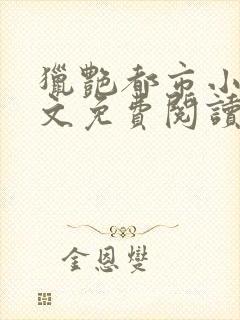 獵艷都市小
文免費閱讀
金恩燮